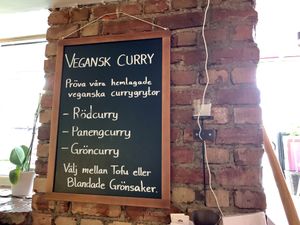 VEGANSK CURRY
Pröva våra hemlagade
veganska currygrytor
– Rödcurry
– Panengcurry
– Gröncurry
Välj mellan Tofu eller
Blandade Grönsaker.